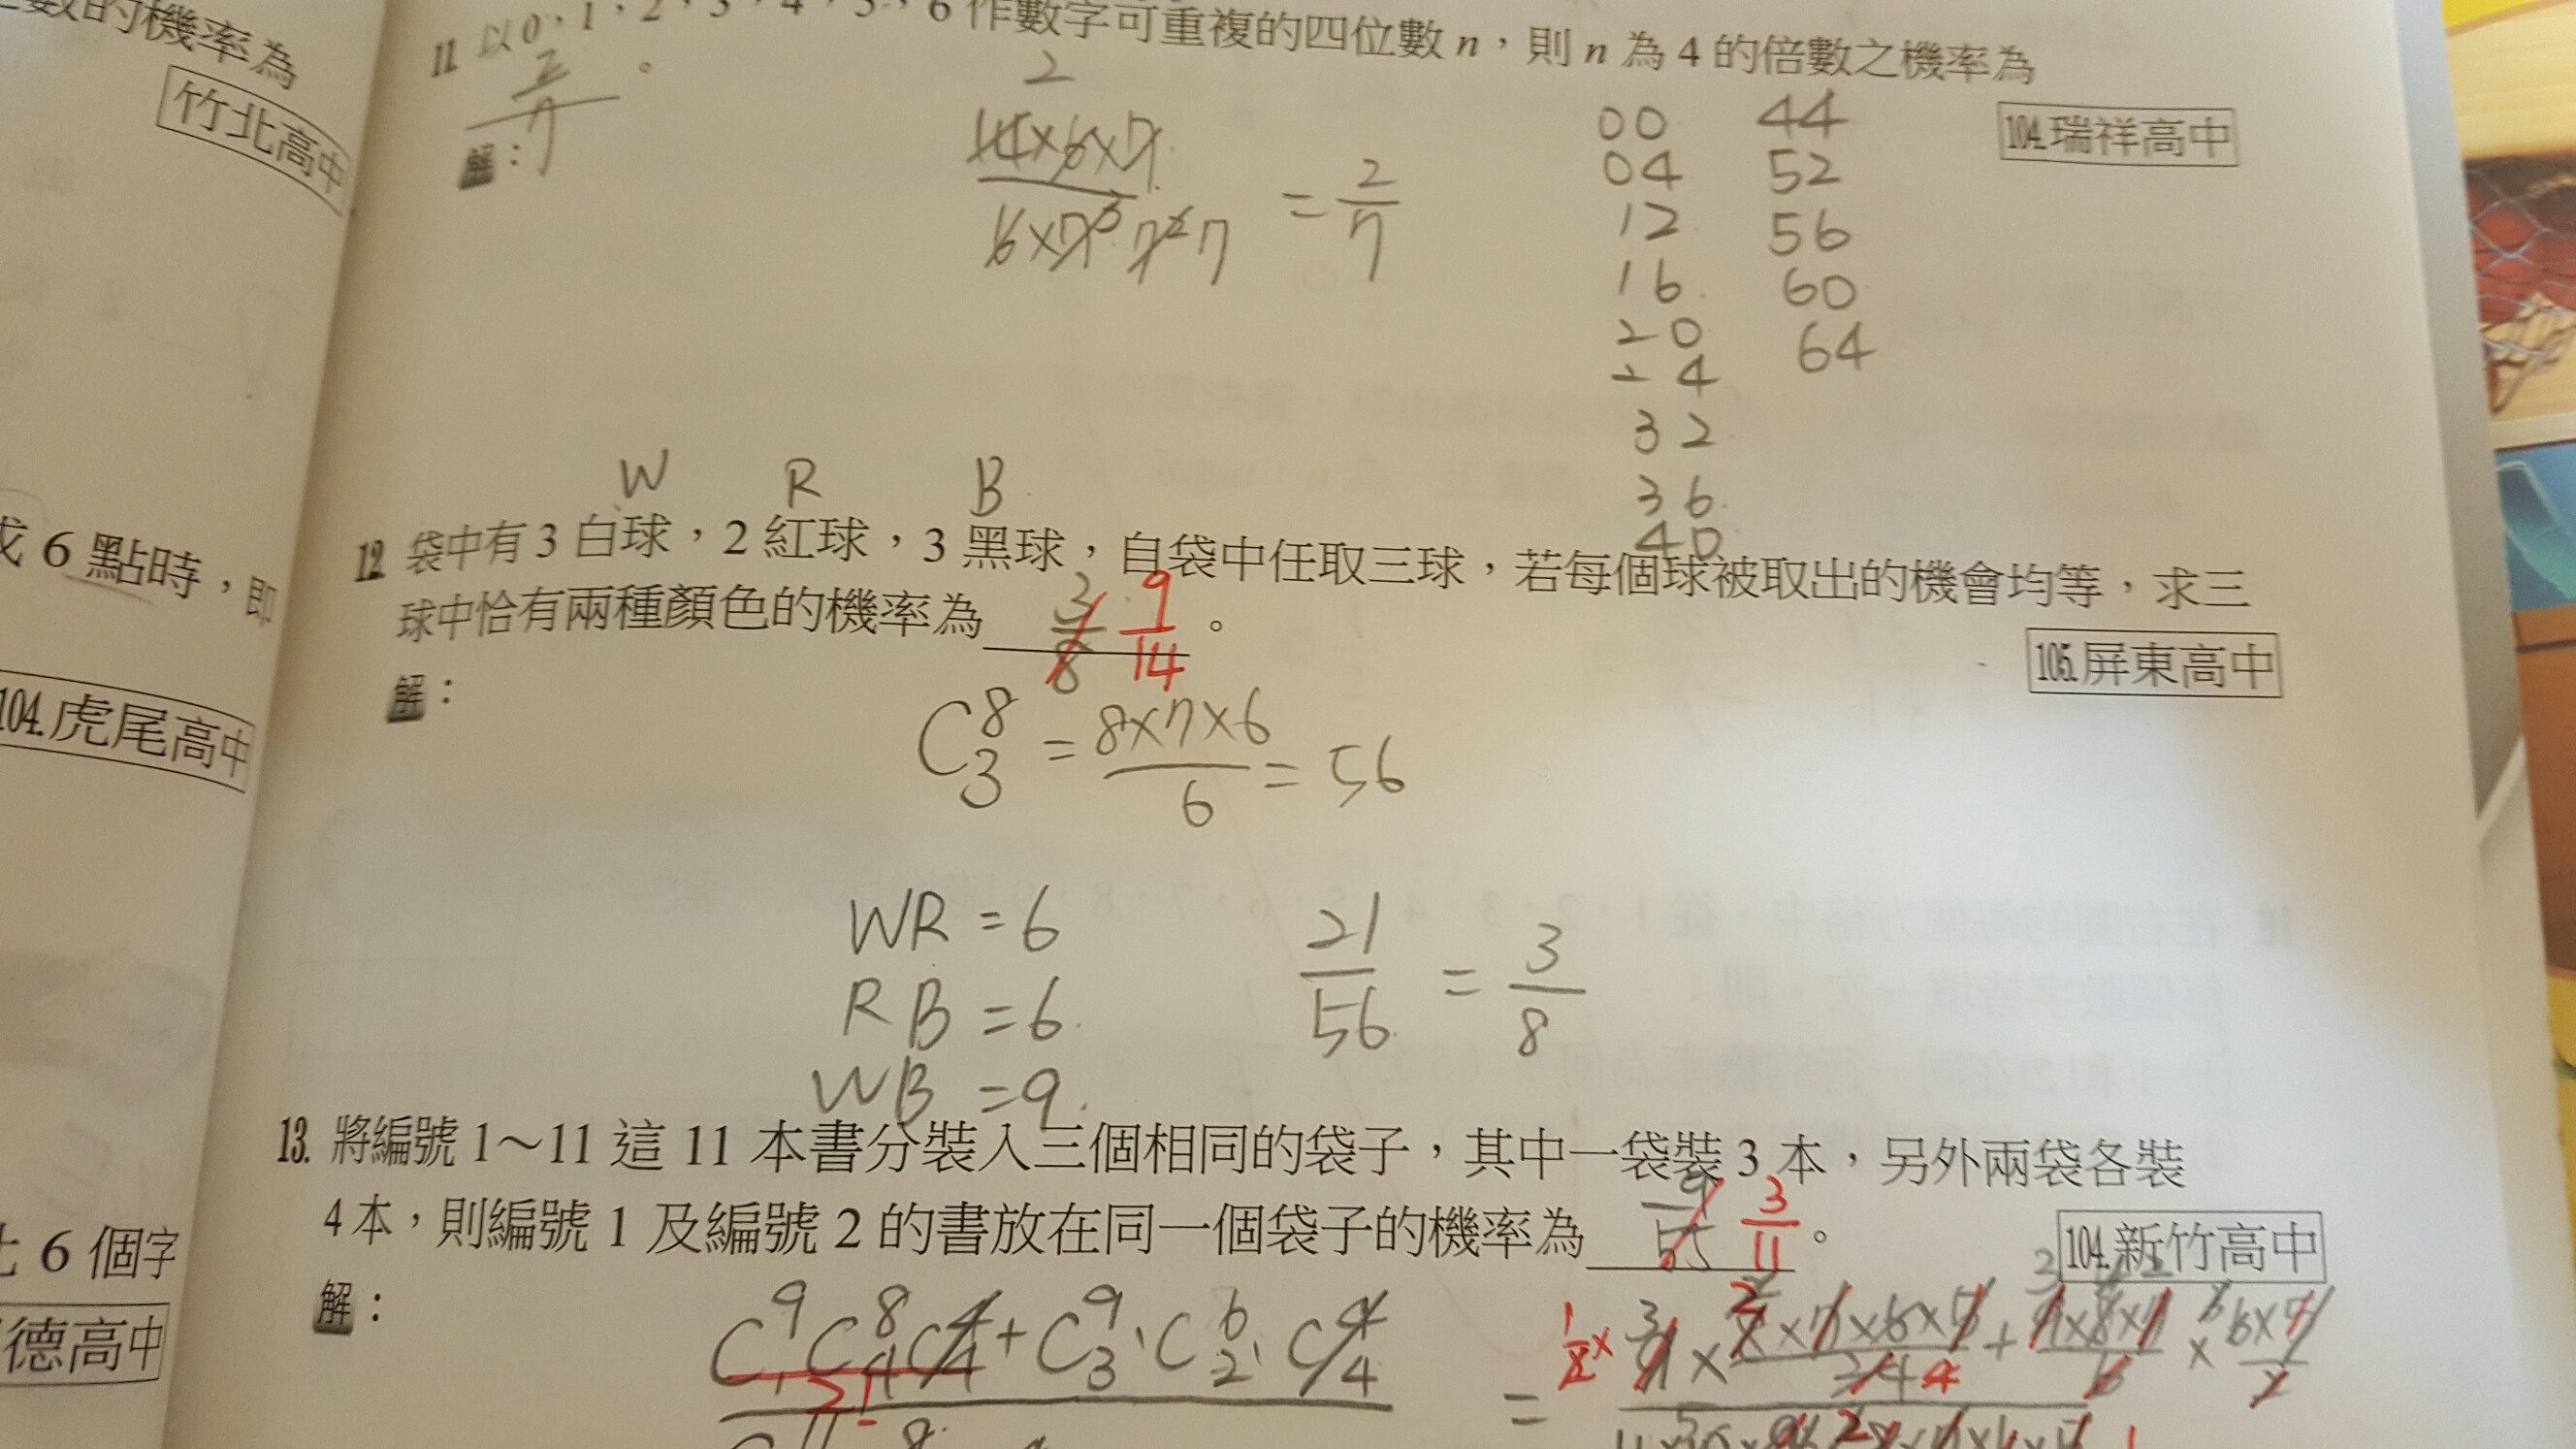 數的機率為
竹北高中
6 點時，即
104.虎尾高中
6 個字
德高中
11. 以 0，1，2，3，4，5，6 作數字可重複的四位數 n，則 n 為 4 的倍數之機率為
2/7 。
104.瑞祥高中
解：
2
14×6×7
6×7³ 7² 7
= 2/7
00 44
04 52
12 56
16 60
20 64
24
32
36
40
W R B
12. 袋中有 3 白球，2 紅球，3 黑球，自袋中任取三球，若每個球被取出的機會均等，求三
球中恰有兩種顏色的機率為 3/8 9/14 。
105.屏東高中
解：
C⁸₃ = 8×7×6/6 = 56
WR = 6
RB = 6
WB = 9
21/56 = 3/8
13. 將編號 1～11 這 11 本書分裝入三個相同的袋子，其中一袋裝 3 本，另外兩袋各裝
4 本，則編號 1 及編號 2 的書放在同一個袋子的機率為 9/55 3/11 。
104.新竹高中
解：
C⁹₁C⁸₄C⁴₄ + C⁹₃·C⁶₂·C⁴₄
2!
=